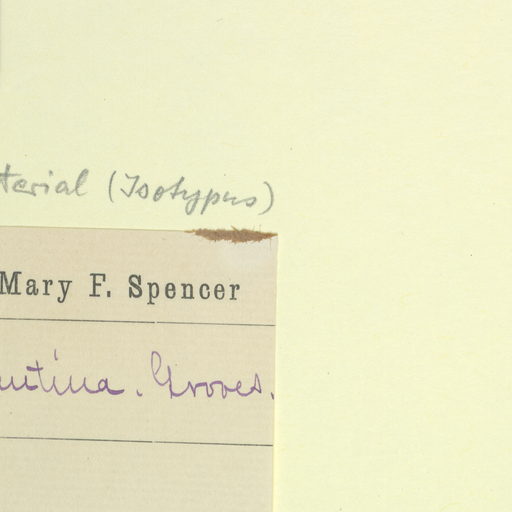 terial (Isotypus)
Mary F. Spencer
untina. Groves.